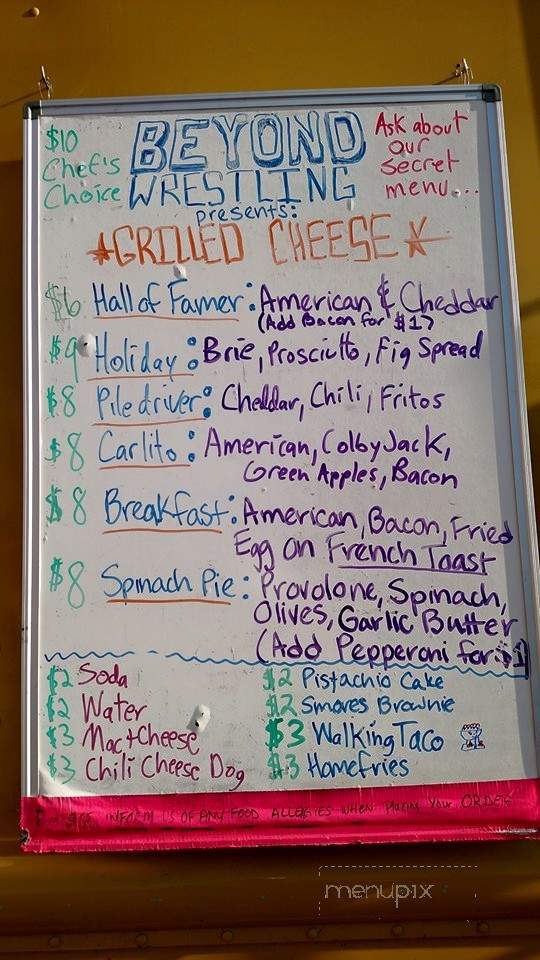 $10
Chef's
Choice
BEYOND
WRESTLING
presents:
Ask about
our
secret
menu...
GRILLED CHEESE
$6 Hall of Famer: American & Cheddar
(Add Bacon for $1)
$9 Holiday: Brie, Prosciutto, Fig Spread
$8 Piledriver: Cheddar, Chili, Fritos
$8 Carlito: American, Colby Jack,
Green Apples, Bacon
$8 Breakfast: American, Bacon, Fried
Egg on French Toast
$8 Spinach Pie: Provolone, Spinach,
Olives, Garlic Butter
(Add Pepperoni for $1)
$2 Soda
$2 Water
$3 Mac+Cheese
$3 Chili Cheese Dog
$2 Pistachio Cake
$2 Smores Brownie
$3 Walking Taco
$3 Homefries
INFORM US OF ANY FOOD ALLERGIES WHEN PLACING YOUR ORDER
menupix